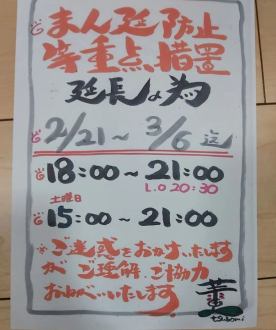 まん延防止
等重点措置
延長の為
2/21～3/6迄
18:00～21:00
L.O 20:30
土曜日
15:00～21:00
※ご迷惑をおかけいたします
がご理解・ご協力
おねがいいたします
蕾
tsubomi